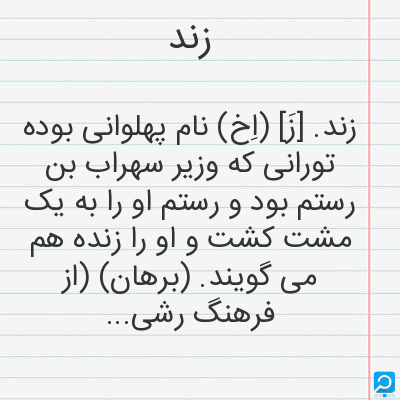 زند
زند. [زَ] (اِخ) نام پهلوانی بوده
تورانی که وزیر سهراب بن
رستم بود و رستم او را به یک
مشت کشت و او را زنده هم
می گویند. (برهان) (از
فرهنگ رشی...